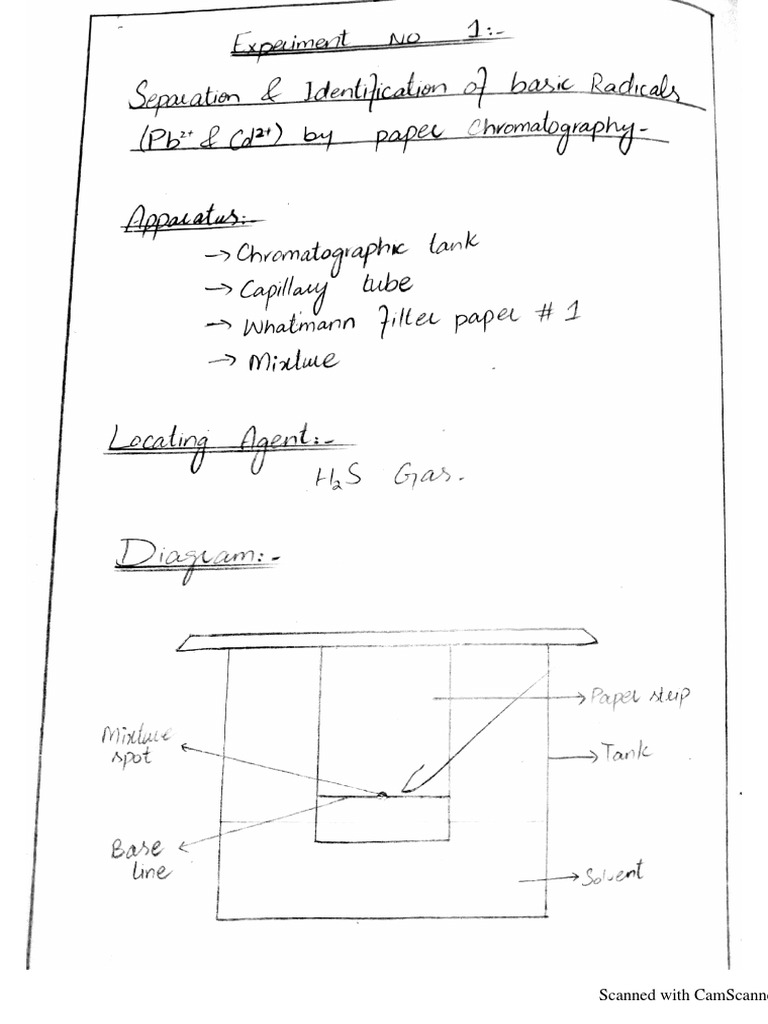 Experiment No 1:-
Separation & Identification of basic Radicals
(Pb²⁺ & Cd²⁺) by paper Chromatography-
Apparatus:-
→ Chromatographic tank
→ Capillary tube
→ Whatmann filter paper # 1
→ Mixture
Locating Agent:-
H₂S Gas.
Diagram:-
Paper strip
Mixture
spot
Tank
Base
line
Solvent
Scanned with CamScanne